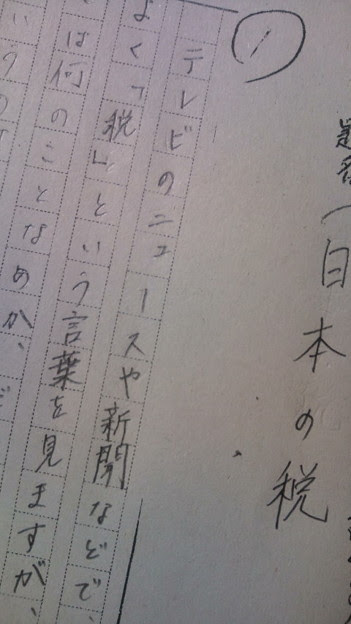 日本の税
1
テレビのニュースや新聞などで、
よく「税」という言葉を見ますが、
は何のことなのか、
いう